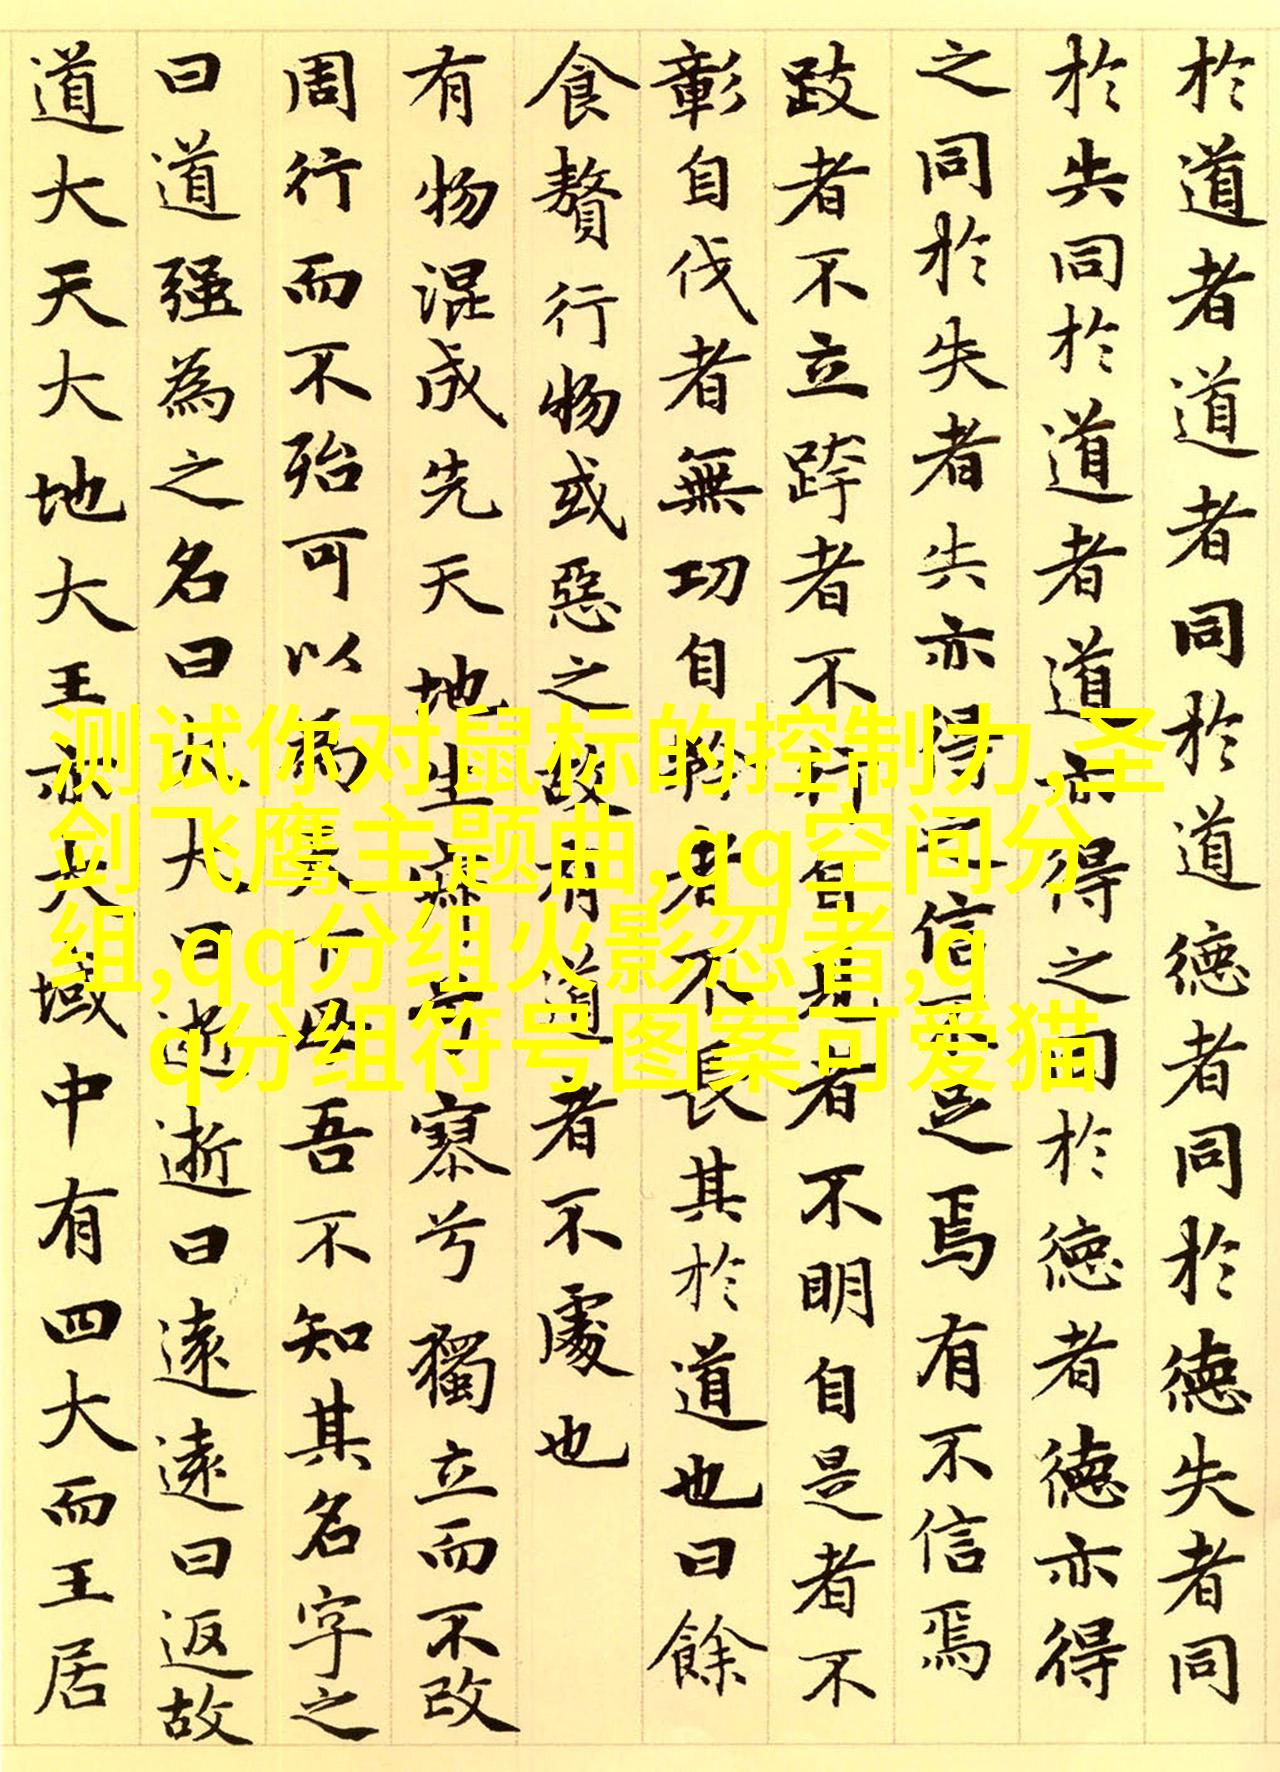 於道者道者同於道德者同於德失者同
於失同於道者道亦得之同於德者德亦得
之同於失者失亦得之信不足焉有不信焉
跂者不立跨者不行自見者不明自是者不
彰自伐者無功自矜者不長其於道也曰餘
食贅行物或惡之故有道者不處也
有物混成先天地生寂兮寥兮獨立而不改
周行而不殆可以為天下母吾不知其名字之
曰道强為之名曰大大曰逝逝曰遠遠曰返故
道大天大地大王亦大域中有四大而王居
测试你对鼠标的控制力,圣
剑飞鹰主题曲,qq空间分
组,qq分组火影忍者,q
q分组符号图案可爱猫